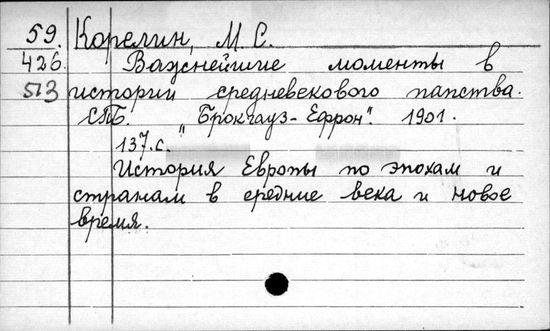 59. Корелин, М. С.
426. Важнейшие моменты в
513 истории средневекового папства.
СПБ. "Брокгауз-Ефрон". 1901.
137.с.
История Европы по эпохам и
странам в средние века и новое
время.